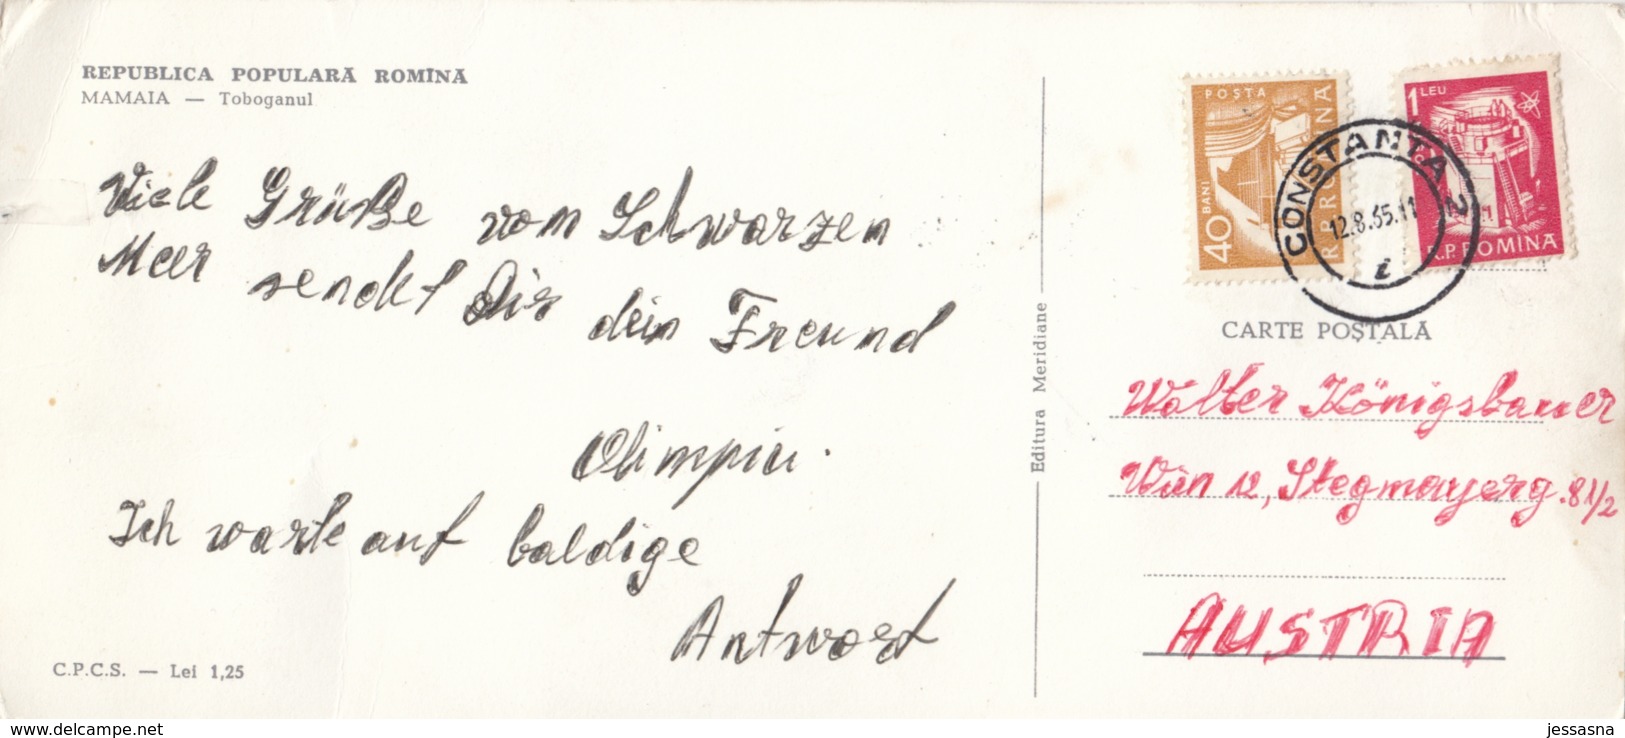 REPUBLICA POPULARĂ ROMÎNĂ
MAMAIA — Toboganul
Viele Grüße vom Schwarzen
Meer sendet Dir dein Freund
Olimpiu.
Ich warte auf baldige
Antwort
C.P.C.S. — Lei 1,25
Editura Meridiane
POSTA
40 BANI
R.P.ROMINA
1 LEU
R.P.ROMINA
CONSTANTA 2
12.8.65.11
CARTE POŞTALĂ
Walter Königsbauer
Wien 12, Stegmayerg. 81/2
AUSTRIA
www.delcampe.net
jessasna